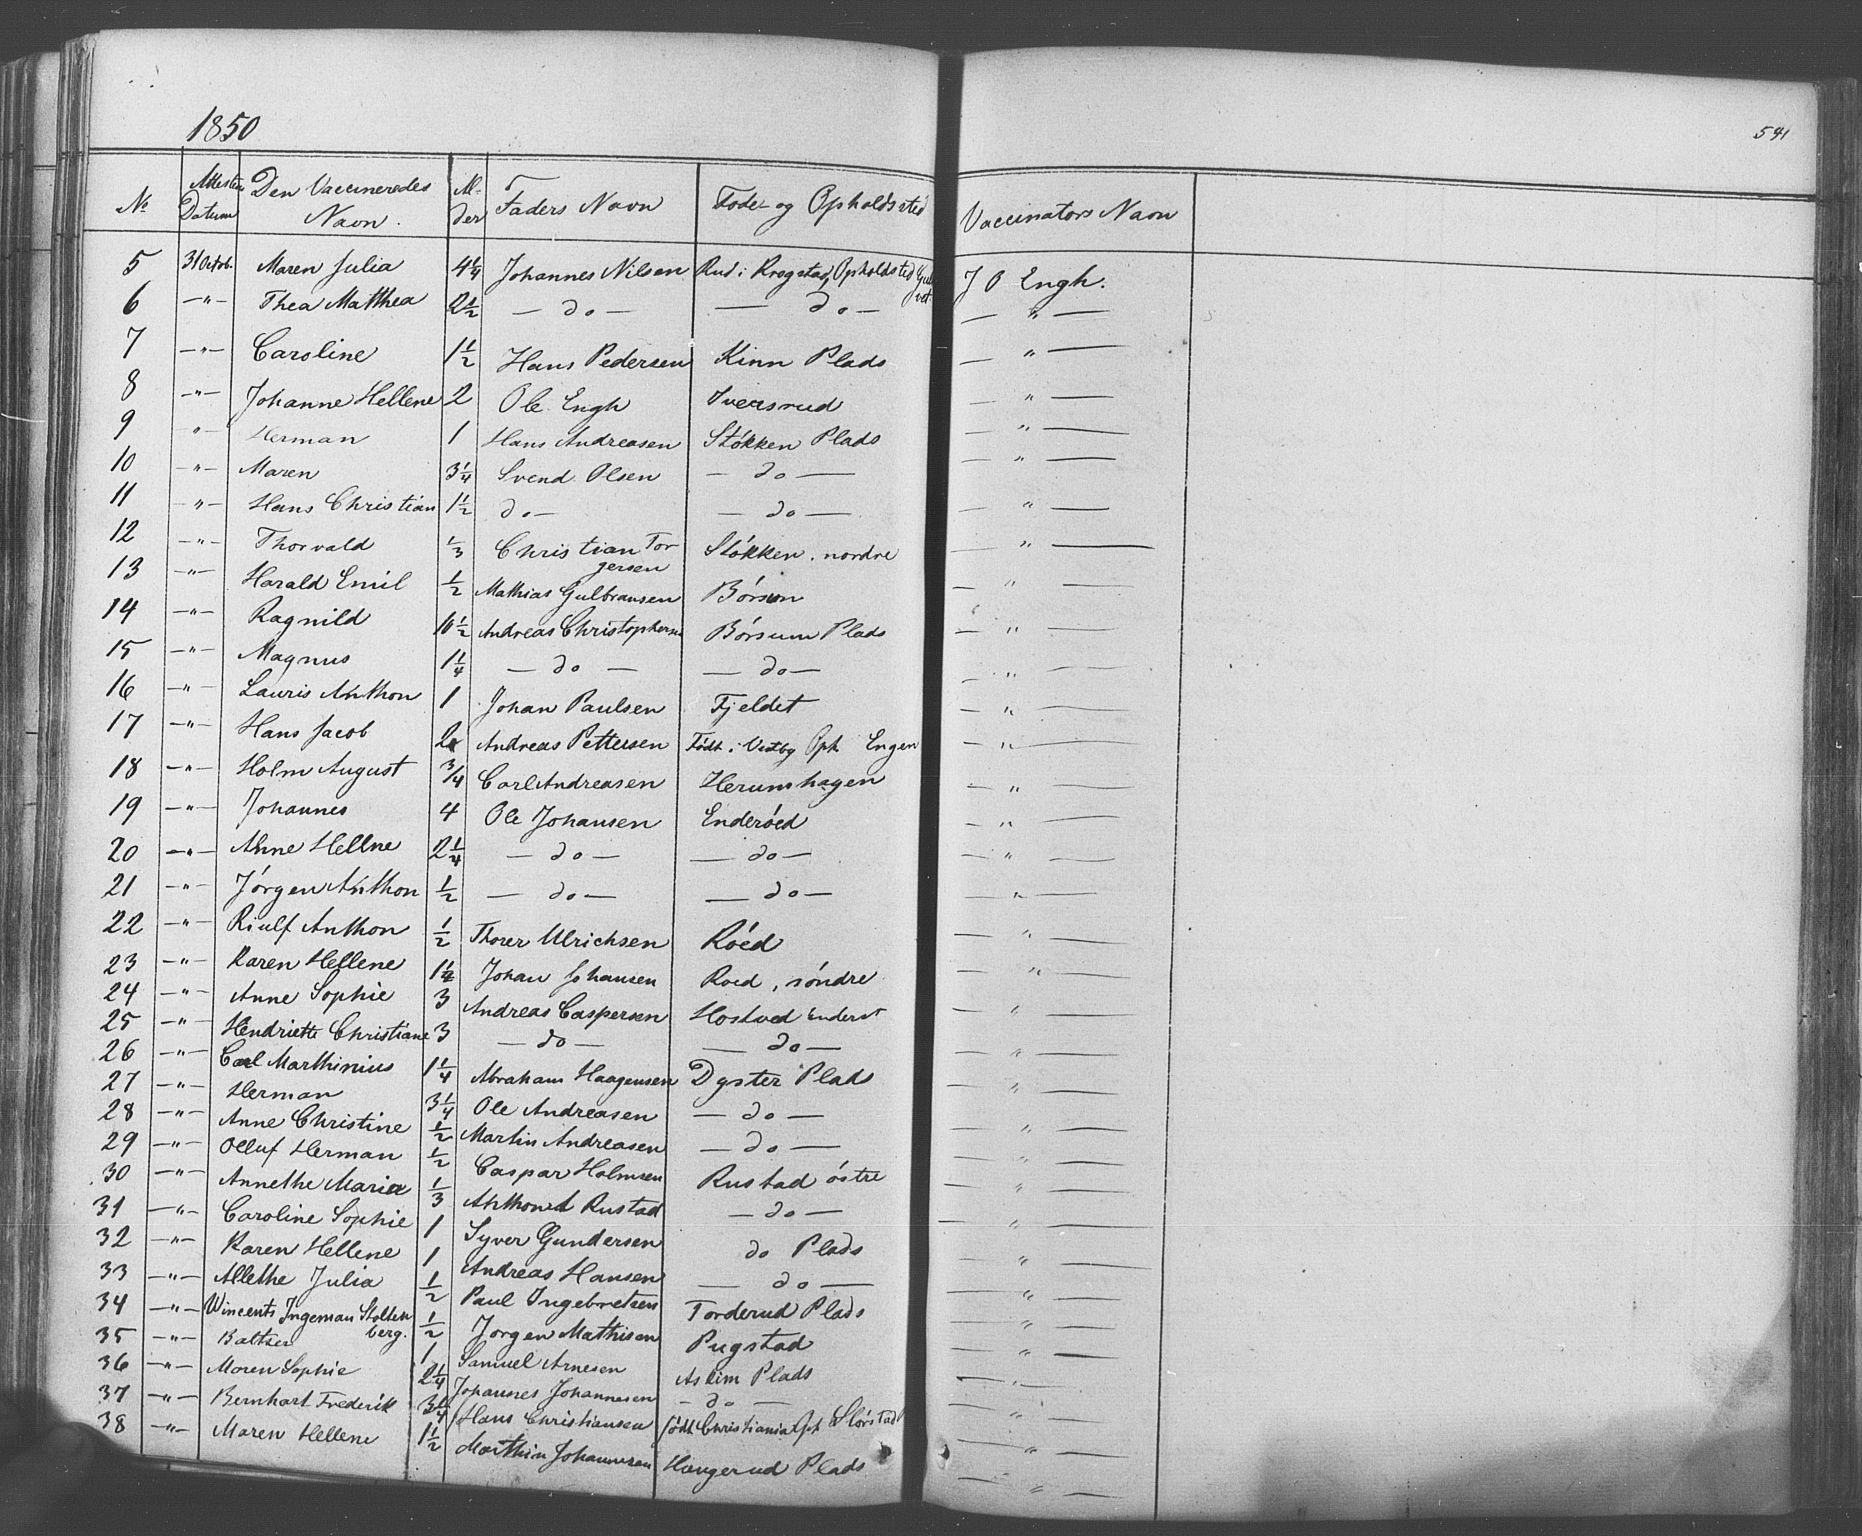 1850
541
No Attestens Datum Den Vaccineredes Navn. Alder Faders Navn Føde- og Opholdssted Vaccinators Navn
5 31 Octob. Maren Julia 4 1/4 Johannes Nilsen Rud i Krogstad, Opholdsted J O Engh.
6 —"— Thea Matthea 2 1/2 — do — — do — — " —
7 —"— Caroline 1 1/2 Hans Pedersen Kinn Plads — " —
8 —"— Johanne Hellene 2 Ole Engh Iversrud — " —
9 " Herman 1 Hans Andreasen Støkken Plads — " —
10 —"— Maren 3 1/4 Svend Olsen — do — — " —
11 —"— Hans Christian 1 1/2 do — — do — — " —
12 —"— Thorvald 1/3 Christian Torgersen Støkken. nordre — " —
13 —"— Harald Emil 1/2 Mathias Gulbransen Børsum — " —
14 —"— Ragnild 10 1/2 Andreas Christophersen Børsum Plads — " —
15 —"— Magnus 1 1/4 — do — — do — — " —
16 —"— Lauris Anthon 1 Johan Paulsen Fjeldet — " —
17 —"— Hans Jacob 2 Andreas Pettersen Født i Vestby Oph Engen — " —
18 —"— Holm August 3/4 Carl Andreasen Herumshagen — " —
19 —"— Johannes 4 Ole Johansen Enderøed — " —
20 —"— Anne Hellne 2 1/4 — do — — do — — " —
21 —"— Jørgen Anthon 1/2 — do — — do — — " —
22 —"— Riulf Anthon 1/2 Thorer Ulrichsen Røed — " —
23 —"— Karen Hellene 1 1/2 Johan Johansen Roed, søndre — " —
24 —"— Anne Sophie 3 Andreas Caspersen Hostved — " —
25 —"— Hendriette Christiane 3 — do — — do — — " —
26 —"— Carl Marthinius 1 1/4 Abraham Haagensen Dyster Plads — " —
27 —"— Herman 3 1/4 Ole Andreasen — do — — " —
28 —"— Anne Christine 1/2 Martin Andreasen — do — — " —
29 —"— Olluf Herman 1/2 Caspar Holmsen Rustad østre — " —
30 —"— Annethe Maria 1/3 Anthon A Rustad — do — — " —
31 —"— Caroline Sophie 1 Syver Gundersen do Plads — " —
32 —"— Karen Hellene 1 Andreas Hansen — do — — " —
33 —"— Allethe Julia 1/2 Paul Ingebretsen Torderud Plads — " —
34 —"— Wincents Ingeman Stoltenberg. 1/2 Jørgen Mathisen Pugstad — " —
35 —"— Baltser 1 Samuel Arnesen Askim Plads — " —
36 —"— Maren Sophie 2 1/4 Johannes Johannesen — do — — " —
37 —"— Bernhart Frederik 3/4 Hans Christiansen født Christiania Oph Størstad — " —
38 —"— Maren Hellene 1 1/2 Marthin Johannesen Haugerud Plads — " —